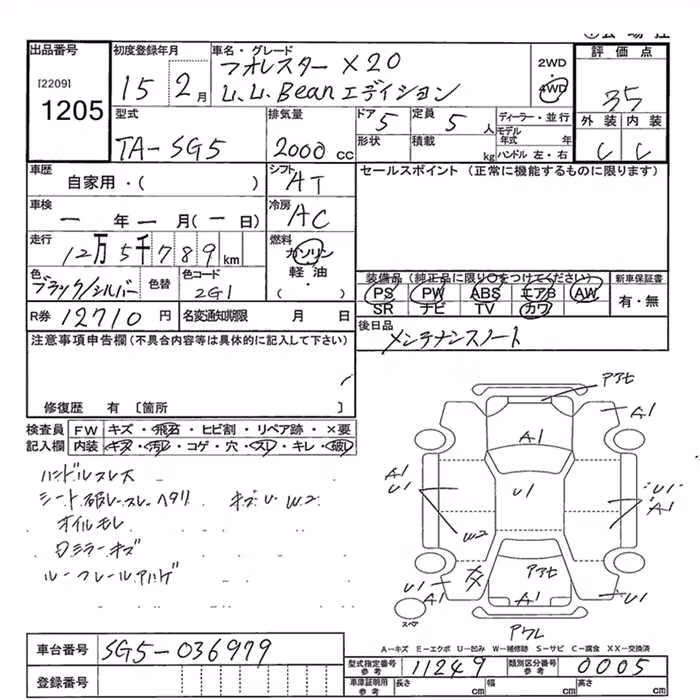 出品番号
[2209]
1205
初度登録年月
15 2月
車名・グレード
フオレスター X20
L.L.Beanエディション
2WD・4WD
評価点
35
外装 内装
C C
型式
TA-SG5
排気量
2000cc
ドア 5
定員 5人
形状
積載 kg
ディーラー・並行
モデル年式 年
ハンドル 左・右
車歴
自家用・( )
シフト AT
セールスポイント (正常に機能するものに限ります)
車検
ー年ー月(ー日)
冷房 AC
走行
12万5千789km
燃料
ガソリン
軽油・
( )
色
ブラック/シルバー
色替
色コード
2G1
装備品(純正品に限り○をつけてください)
PS PW ABS エアB AW
SR ナビ TV カワ
新車保証書
有・無
R券 12710円
名変通知期限 月 日
後日品
メンテナンスノート
注意事項申告欄(不具合内容等は具体的に記入して下さい)
修復歴 有〔箇所
検査員記入欄
FW キズ・飛石・ヒビ割・リペア跡・×要
内装 キズ・汚レ・コゲ・穴・スレ・キレ・破レ
ハンドルスレ大
シート破レ・スレ・ヘタリ キズ U W2
オイルモレ
ロミラーキズ
ルーフレールアハゲ
アアセ
A1
A1
A1
U1
U1
U1
A1
W2
アアセ
U1
A1
A1
U1
スペア
アウレ
A−キズ E−エクボ U−凹み W−補修跡 S−サビ C−腐食 XX−交換済
車台番号 SG5-036979
型式指定番号 参考 11249
類別区分番号 参考 0005
登録番号
車庫証明用 参考
長さ cm
幅 cm
高さ cm